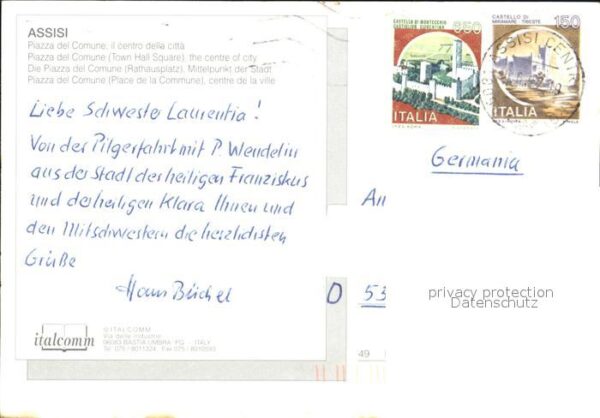 ASSISI
Piazza del Comune, il centro della città
Piazza del Comune (Town Hall Square), the centre of city
Die Piazza del Comune (Rathausplatz), Mittelpunkt der Stadt
Piazza del Comune (Place de la Commune), centre de la ville
Liebe Schwester Laurentia!
Von der Pilgerfahrt mit P. Wendelin
aus der Stadt der heiligen Franziskus
und der heiligen Klara Ihnen und
den Mitschwestern die herzlichsten
Grüße
Hans Büchel
italcomm
© ITALCOMM
Via delle Industrie
06083 BASTIA UMBRA - PG - ITALY
Tel. 075 - 8011324, Fax 075 -
CASTELLO DI MONTECCHIO
CASTIGLION FIORENTINO
650
ITALIA
CASTELLO DI
MIRAMARE TRIESTE
150
ITALIA
ASSISI CENTRO
Germania
An
D 53
privacy protection
Datenschutz
49